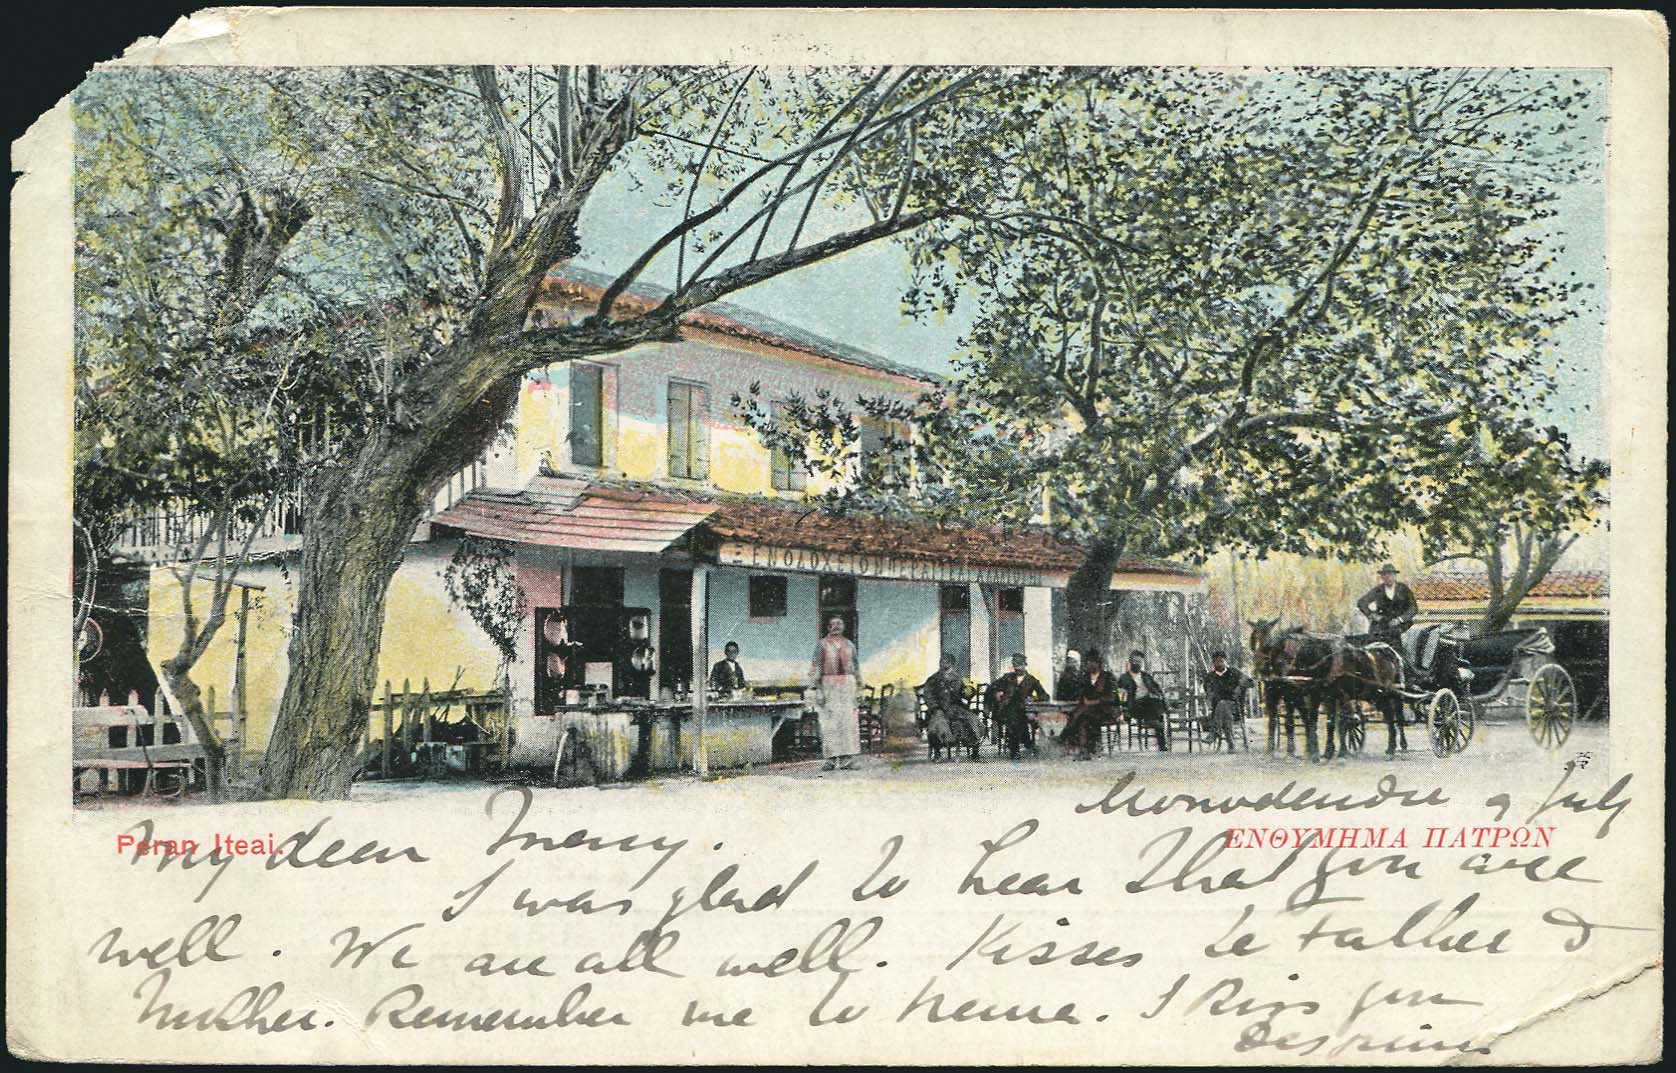 ΞΕΝΟΔΟΧΕΙΟΝ
Peran Iteai.
ΕΝΘΥΜΗΜΑ ΠΑΤΡΩΝ
Monodendri 9 July
My dear Mary.
I was glad to hear that you are
well. We are all well. Kisses to Father &
Mother. Remember me to . I kiss you
Despina